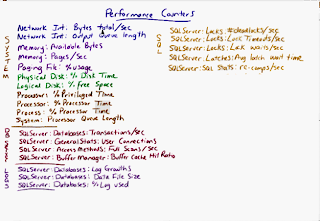 Performance Counters
Network Int: Bytes total/sec
Network Int: Output Queue length
Memory: Available Bytes
Memory: Pages/sec
Paging File: % usage
Physical Disk: % Disk Time
Logical Disk: % free Space
Processor: % Privileged Time
Processor: % Processor Time
Process: % Processor Time
System: Processor Queue Length
SYSTEM
SQLServer: Databases: Transactions/sec
SQLServer: General Stats: User Connections
SQLServer: Access Methods: Full Scans/sec
SQLServer: Buffer Manager: Buffer Cache Hit Ratio
SQLServer: Databases: Log Growths
SQLServer: Databases: Data File Size
SQLServer: Databases: % Log used
SQL
SQLServer: Locks: #deadlocks/sec
SQLServer: Locks: Lock Timeouts/sec
SQLServer: Locks: Lock waits/sec
SQLServer: Latches: Avg latch wait time
SQLServer: SQL Stats: re-comps/sec